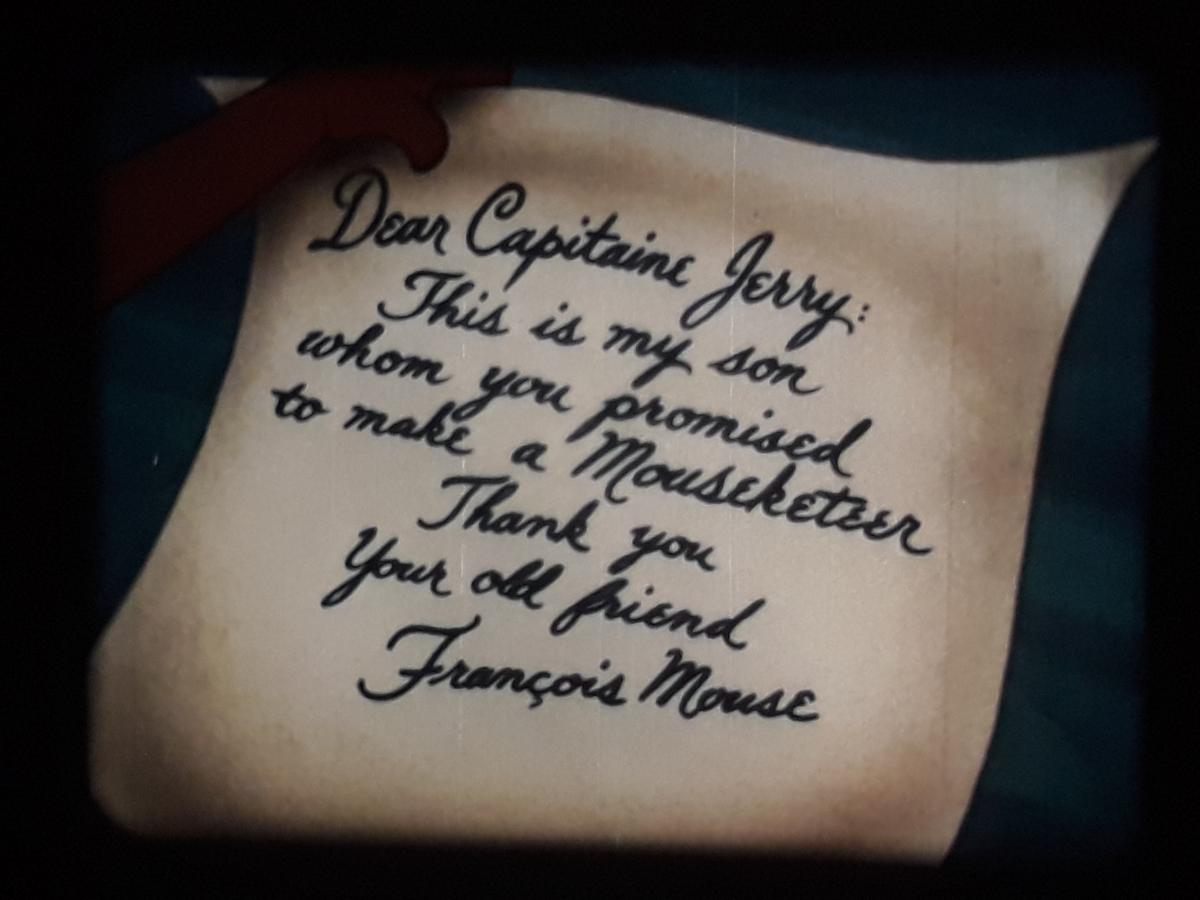 Dear Capitaine Jerry:
This is my son
whom you promised
to make a Mouseketeer
Thank you
Your old friend
François Mouse